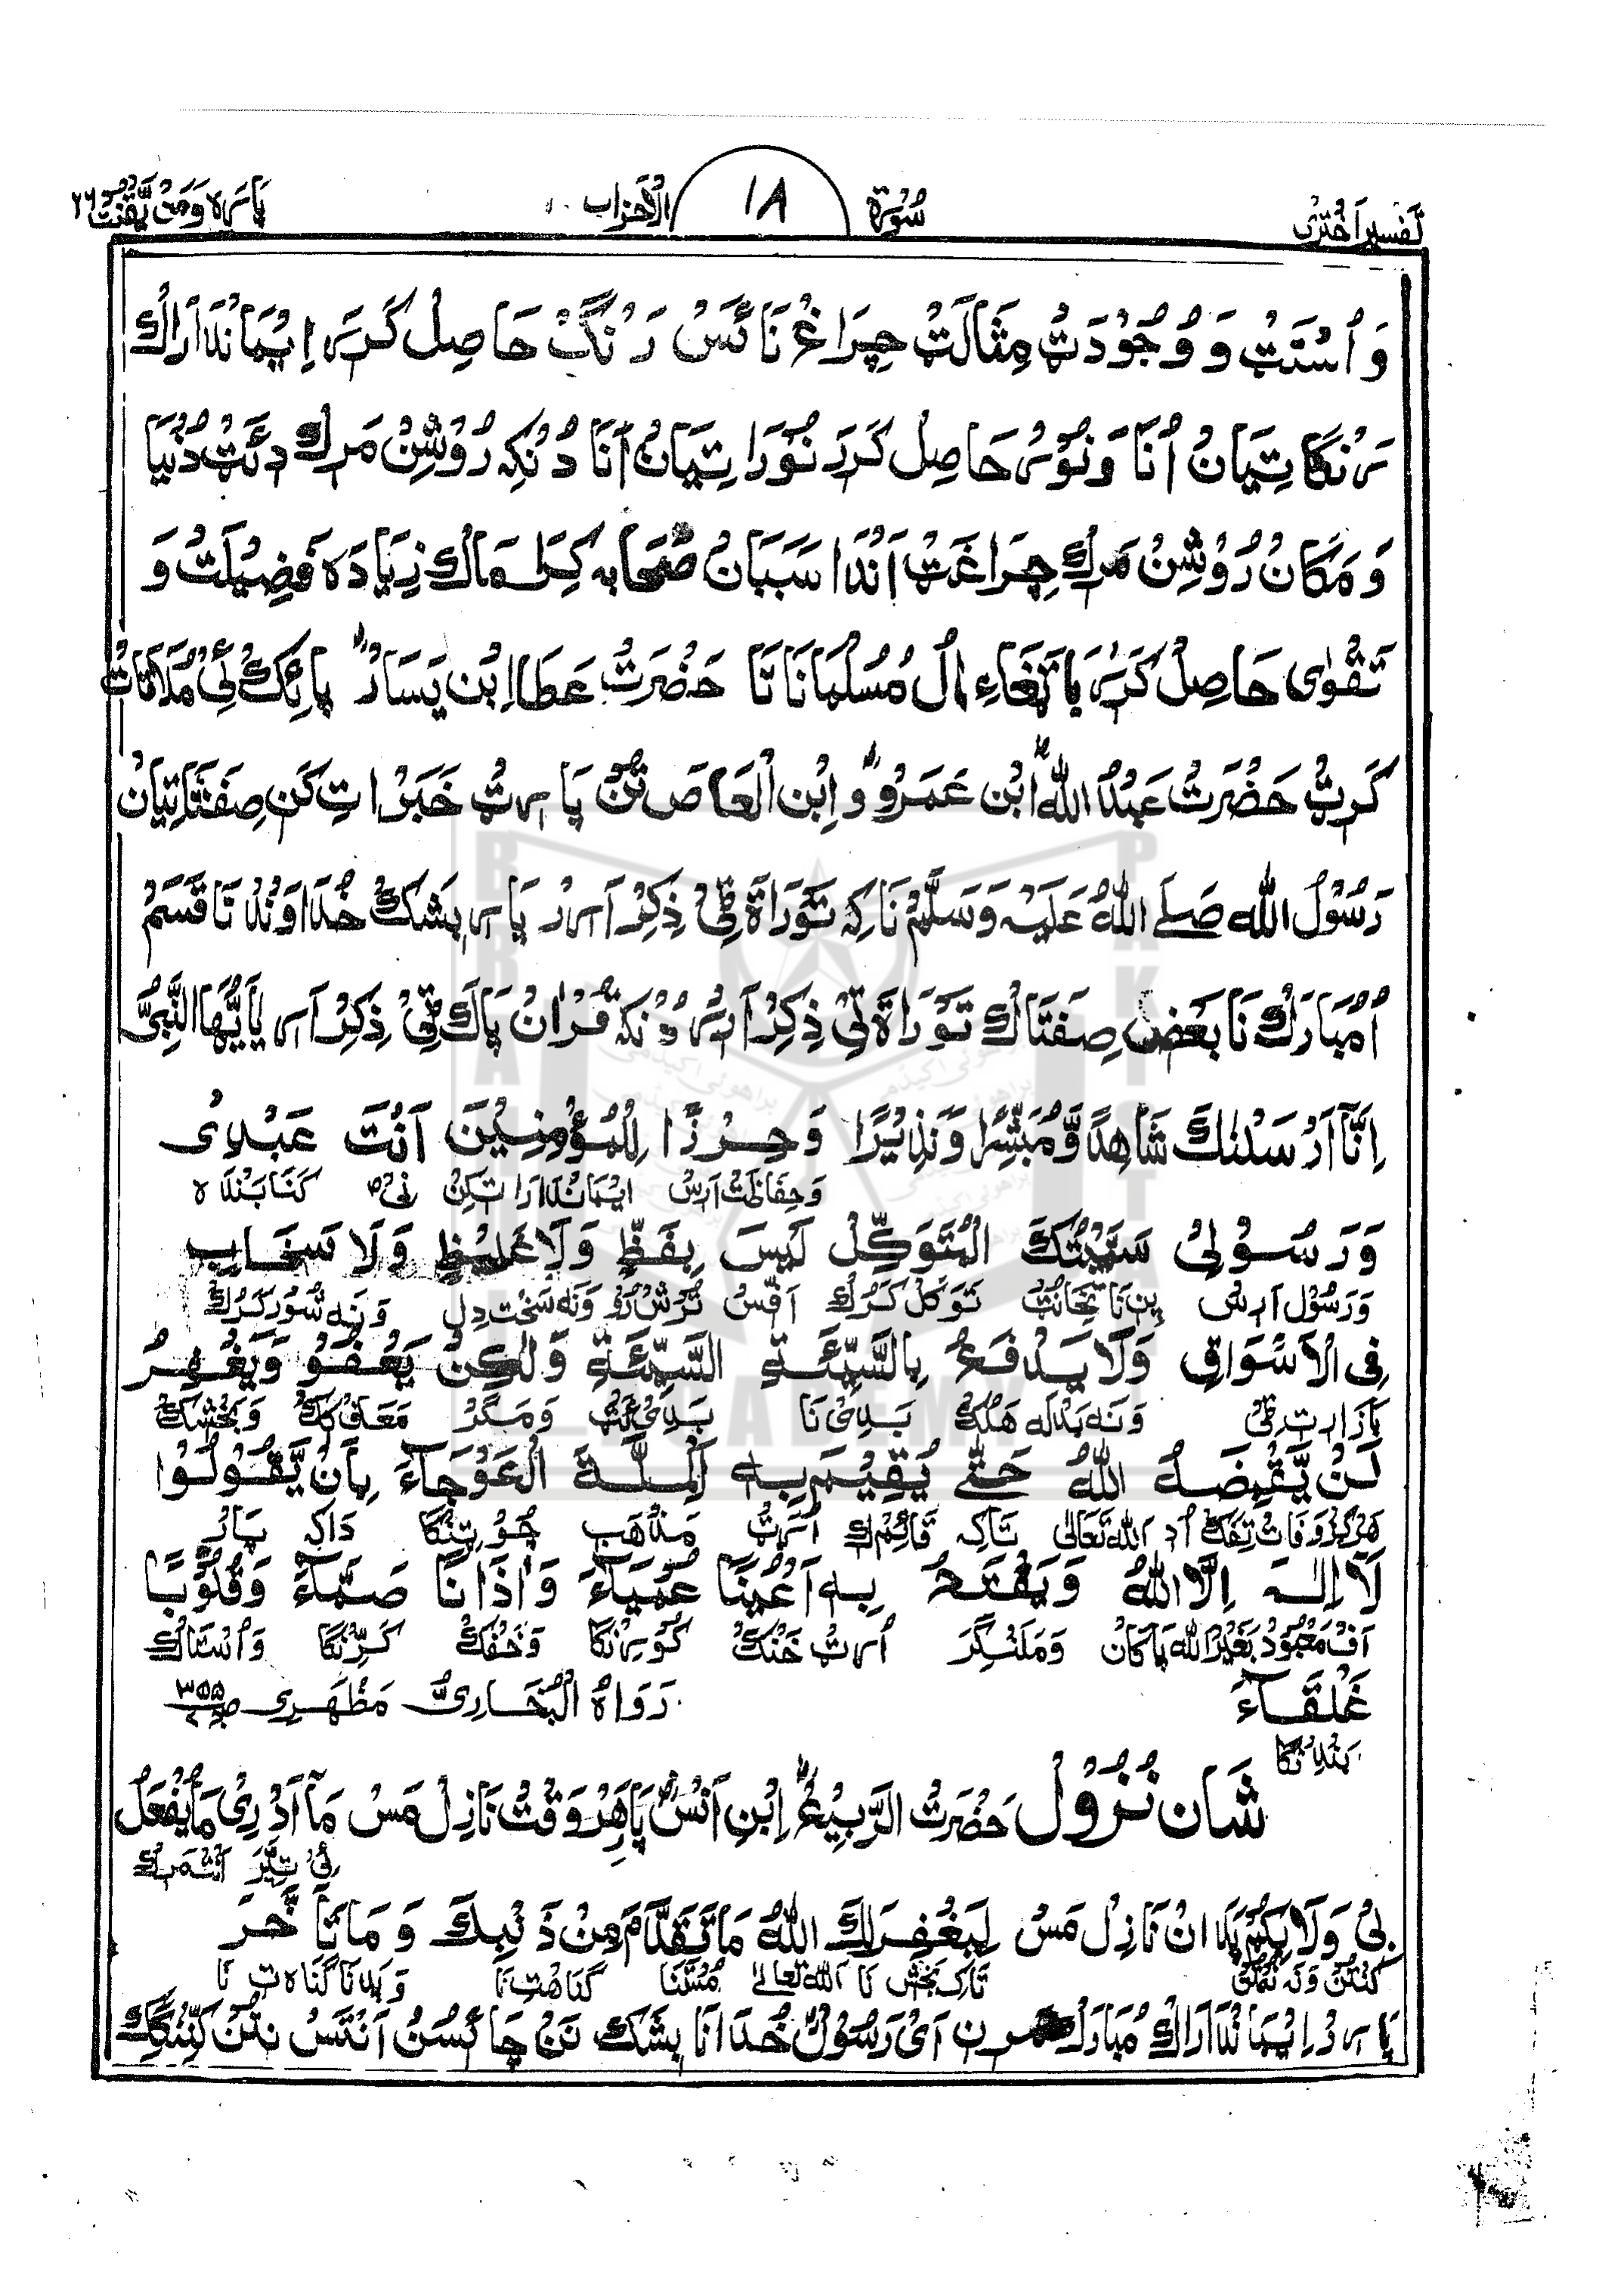 تَفسیر اَخْتَرِی سُوْرَۃ ۱۸ الْاَحْزَاب پَارَہ وَمَنْ یَّقْنُتْ ۲۲
وَ اُسْتَتْ وَ وُجُوْدَتْ مِثَالَتْ چِرَاغْ نَا ئَسْ رَنْگْ حَاصِلْ کَرَیرَ اِیْمَانْدَارَاکْ
رَنْگَا تِیَانْ اُنَا وَ نُوْر حَاصِلْ کَرَر نُوْرَا تِیَانْ اَنَا دُنْکِہ رُوْشِنْ مَرِکْ دِئَتْ دُنْیَا
وَ مَکَانْ رُوْشِنْ مَرِکْ چِرَاغَتْ اَنْدَا سَبَبَانْ صَحَابَہ کِرَامَاکْ زِیَادَہ فَضِیْلَتْ وَ
تَقْوٰی حَاصِلْ کَرَیر بَا تَغَاءِ اِل مُسْلْمَانَا نَا حَضْرَتْ عَطَا اِبْن یَسَارْ پَائِکْ اِیْ مُلَاقَاتْ
کَرِتْ حَضْرَتْ عَبْدُ اللّٰہ اِبْن عَمَرْو وِ ابْن الْعَاص تُنْ پَارِتْ خَبَرْ ا تِ کَن صِفَتَا تِیَانْ
رَسُوْلُ اللّٰہ صَلَے اللّٰہُ عَلَیْہ وَسَلَّمْ نَا کِہ تَوْرَاۃ ٹِیْ ذِکِرْ اَرِرْ پَارِ بِشَکْ خُدَا وَنْدْ نَا قَسَمْ
اُ مُبَارَکْ نَا بَعْض صِفَتَاکْ تَوْرَاۃ ٹِیْ ذِکِرْ اَرِرْ دُنْکِہ قُرْاٰنْ پَاکْ ٹِیْ ذِکِرْ اَرِ یٰاَیُّہَا النَّبِیُّ
اِنَّآ اَرْسَلْنٰكَ شَاهِدًا وَّمُبَشِّرًا وَنَذِیْرًا وَحِرْزًا لِلْمُؤْمِنِیْنَ اَنْتَ عَبْدِیْ
وَحِفَاظَتْ اَرِسْ اِیْمَانْدَارَا تِکِنْ نِیْ کَنَا بَنْدَہ
وَرَسُوْلِیْ سَمَّیْتُكَ الْمُتَوَکِّلْ لَیْسَ بِفَظٍّ وَلَا غَلِیْظٍ وَلَا سَخَابٍ
وَرَسُوْل اَرِسْ پِن نَا تَوَکَّلْ کَرُکْ اَفَسْ تُرُشْ رُوْ وَنَہ سَخْت دِل وَنَہ شُوْر کَرُکْ
فِی الْاَسْوَاقِ وَلَا یَدْفَعُ بِالسَّیِّئَةِ السَّیِّئَةَ وَلٰکِنْ یَعْفُوْ وَیَغْفِرُ
بَازَارَاتِ ٹِیْ وَنَہ بَدْلَہ ہَلِکْ بَدِیْ نَا بَدِیْ ئَتْ وَ مَگَرْ مَعَافْ کِکْ وَ بَخْشِکْ
لَنْ یَّقْبِضَہُ اللّٰہُ حَتّٰی یُقِیْمَ بِہِ الْمِلَّةَ الْعَوْجَآءَ بِاَنْ یَّقُوْلُوْا
ہَرْگِزْ وَفَاتْ تِفَکْ اُدِ اَللّٰہ تَعَالٰی تَاکِہ قَائِم کِ اُرَتْ مَذْهَب چُوْ ٹِنْگَا دَاکِہ پَارْ
لَآ اِلٰہَ اِلَّا اللّٰہُ وَیَفْتَحَ بِہِ اَعْیُنًا عُمْیَآءَ وَاٰذَانًا صَمَّآءَ وَقُلُوْبًا
اَفْ مَعْبُوْدْ بَغَیْرْ اللّٰہ پَاکَانْ وَمَلَنْگِرَ اُرَتْ خَنْکْ کُوْرِنْگَا وَخَفْکْ کَرِّنْگَا وَاُسْتَاکْ
غَلْقَآءَ رَوَاہُ الْبُخَارِیُّ مَظْهَرِی صـ۳۵۵
بَنْدِنْگَا
شَانِ نُزُوْل حَضْرَتْ الرَّبِیْعْ اِبْنِ اَنَسْ پَاہِرْ وَقْتْ نَازِلْ مَسْ مَآ اَدْرِیْ مَا یُفْعَلُ
بِیْ وَلَا بِکُمْ پَدَانْ نَازِلْ مَسْ لِیَغْفِرَ لَكَ اللّٰہُ مَا تَقَدَّمَ مِنْ ذَنْبِكَ وَ مَا تَاَخَّرَ
کَنْتُنْ وَنَہ نُمْتُنْ تَاکِہ بَخْش کَ اَللّٰہ تَعَالٰے مُسْتَنَا گُنَاهْتِنَا وَ پَدَانَا گُنَاہ تِ نَا
پَارِرْ اِیْمَانْدَارَاکْ مُبَارَکْ مَرِن اَیْ رَسُوْلْ خُدَا نَا بِشَکْ نَنْ چَائِسُنْ اَنْتَسْ نِتُنْ کِنِنْگِکْ